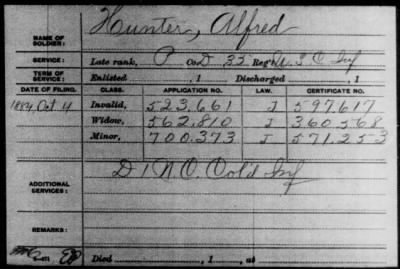 Hunter, Alfred
NAME OF SOLDIER:
SERVICE: Late rank, P Co. D 35 Reg't U.S.C. Inf
TERM OF SERVICE: Enlisted , 1 Discharged , 1
DATE OF FILING. CLASS. APPLICATION NO. LAW. CERTIFICATE NO.
1884, Oct 4 Invalid, 523.661 J 597.617
Widow, 562.810 J 360568
Minor, 700.373 J 571.253
ADDITIONAL SERVICES: D 1 N.C. Col'd Inf
REMARKS:
Died , 1 , at